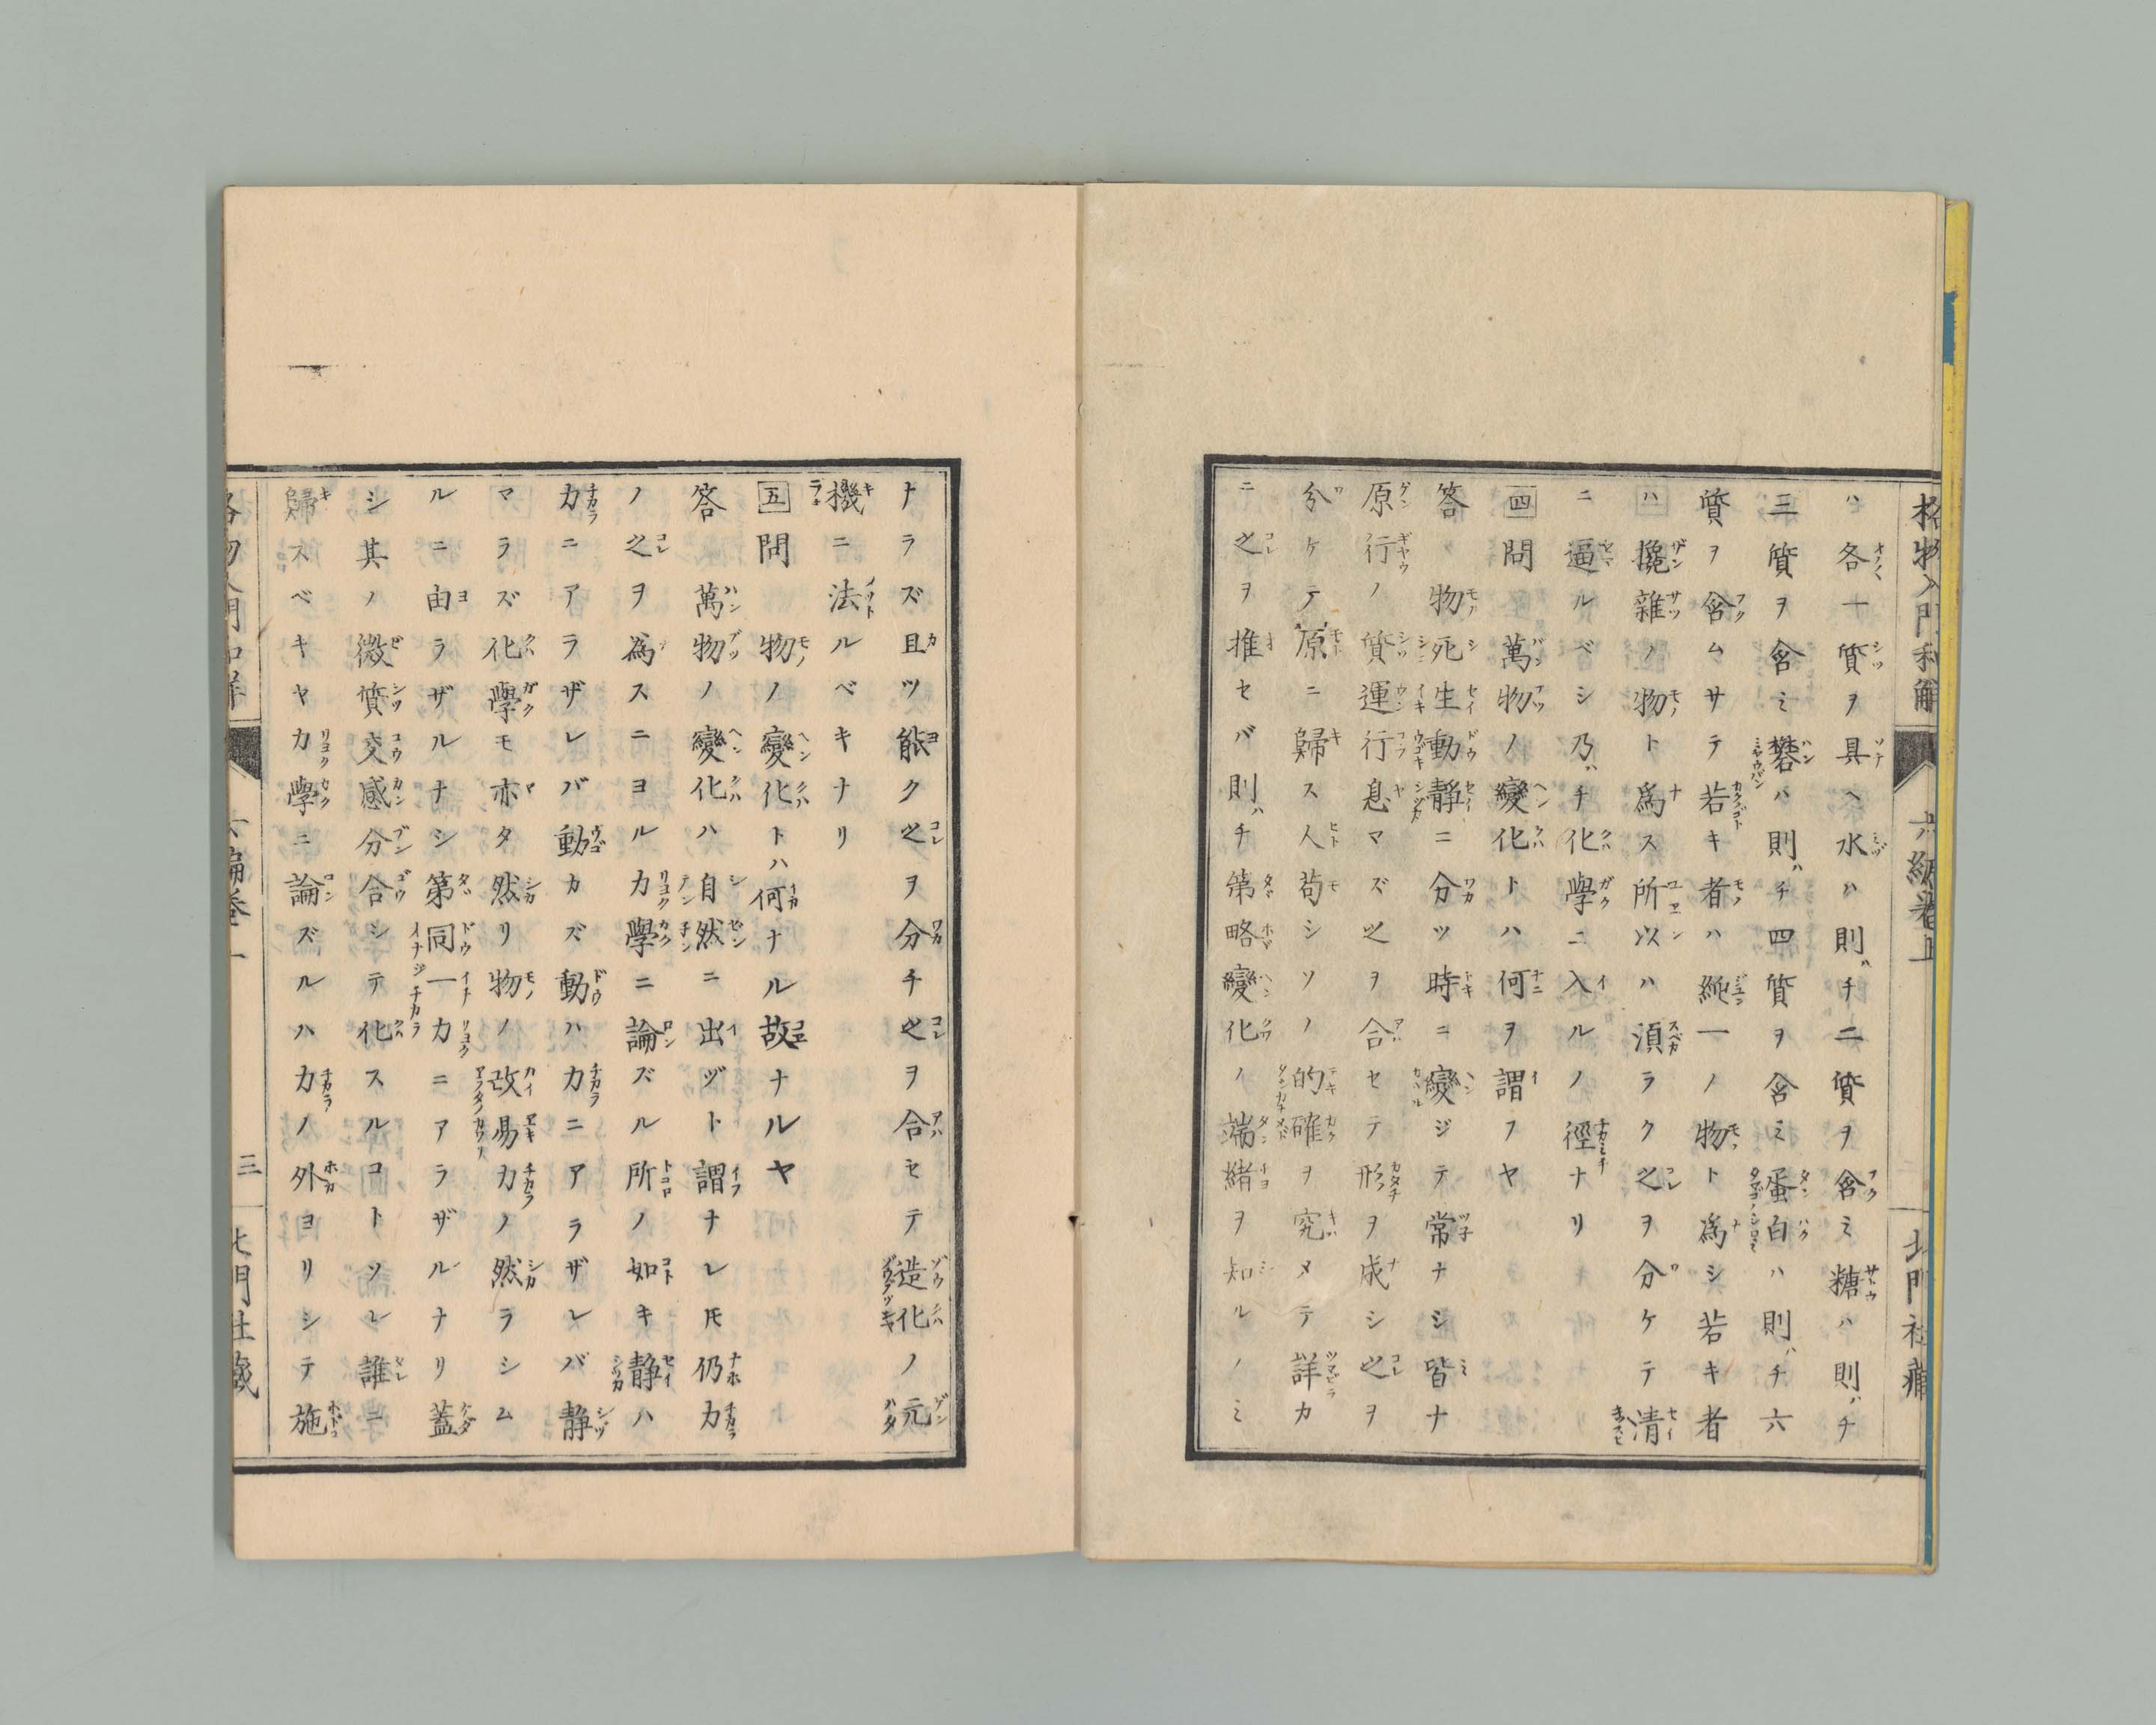 格物入門和解 六編卷上 北門社藏
ハ各十質ヲ具ヘ水ハ則チ二質ヲ含ミ糖ハ則チ
三質ヲ含ミ礬ハ則チ四質ヲ含ミ蛋白ハ則チ六
質ヲ含ムサテ若キ者ハ純一ノ物ト爲シ若キ者
ハ攙雜ノ物ト爲ス所以ハ須ラク之ヲ分ケテ清
ニ逼ルベシ乃チ化學ニ入ルノ徑ナリ
四問萬物ノ變化トハ何ヲ謂フヤ
答物死生動靜ニ分ツ時ニ變ジテ常ナシ皆ナ
原行ノ質運行息マズ之ヲ合セテ形ヲ成シ之ヲ
分ケテ原ニ歸ス人苟シソノ的確ヲ究メテ詳カ
ニ之ヲ推セバ則チ第略變化ノ端緒ヲ知ルノミ
ナラズ且ツ能ク之ヲ分チ之ヲ合セテ造化ノ元
機ニ法ルベキナリ
五問物ノ變化トハ何ナル故ナルヤ
答萬物ノ變化ハ自然ニ出ヅト謂ナレ𪜈仍力
ノ之ヲ為スニヨル力學ニ論ズル所ノ如キ靜ハ
力ニアラザレバ動カズ動ハ力ニアラザレバ靜
マラズ化學モ亦タ然リ物ノ改易力ノ然ラシム
ルニ由ラザルナシ第同一力ニアラザルナリ蓋
シ其ノ微質交感分合シテ化スルコトソレ誰ニ
歸スベキヤ力學ニ論ズルハ力ノ外ヨリシテ施
格物入門和解 六編卷上 三 北門社藏